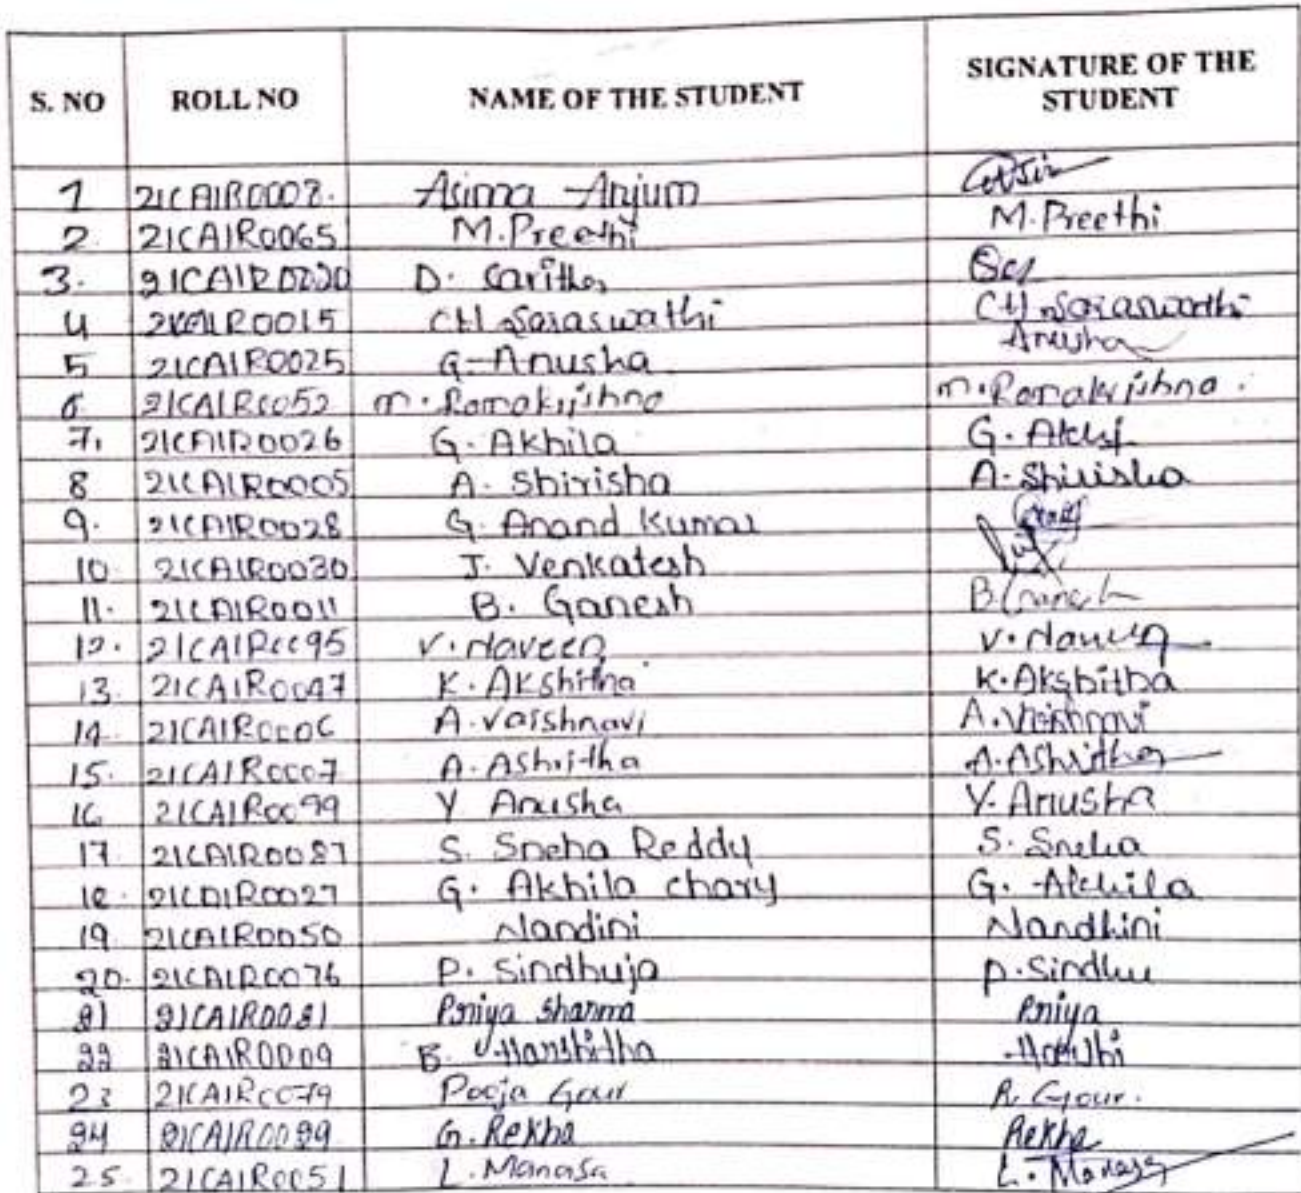 S. NO ROLL NO NAME OF THE STUDENT SIGNATURE OF THE STUDENT
1 21CAIR0008. Asima Anjum
2. 21CAIR0065 M.Preethi M.Preethi
3. 21CAIR0020 D. Saritha
4 0015 CH Saraswathi CH Saraswathi
5 21CAIR0025 G-Anusha Anusha
6 21CAIR0052 m. Ramakrishna m. Ramakrishna.
7. 21CAIR0026 G. Akhila G.
8 21CAIR0005 A. Shirisha A. Shirisha
9. 21CAIR0028 G. Anand Kumar
10. 21CAIR0030 J. Venkatesh
11. 21CAIR0011 B. Ganesh B. Ganesh
12. 21CAIR0095 V. Naveen V. Naveen
13. 21CAIR0047 K. Akshitha K. Akshitha
14 21CAIR0006 A. Vaishnavi A. Vaishnavi
15. 21CAIR0007 A. Ashritha A. Ashritha
16 21CAIR0099 Y Anusha Y. Anusha
17. 21CAIR0087 S. Sneha Reddy S. Sneha
18. 21CAIR0027 G. Akhila chary G. Akhila
19. 21CAIR0050 Nandini Nandhini
20. 21CAIR0076 P. Sindhuja P. Sindhu
21 21CAIR0081 Priya Sharma Priya
22 21CAIR0009 B. Harshitha
23 21CAIR0079 Pooja Gour P. Gour.
24 21CAIR0029 G. Rekha Rekha
25. 21CAIR0051 L. Manasa L. Manasa